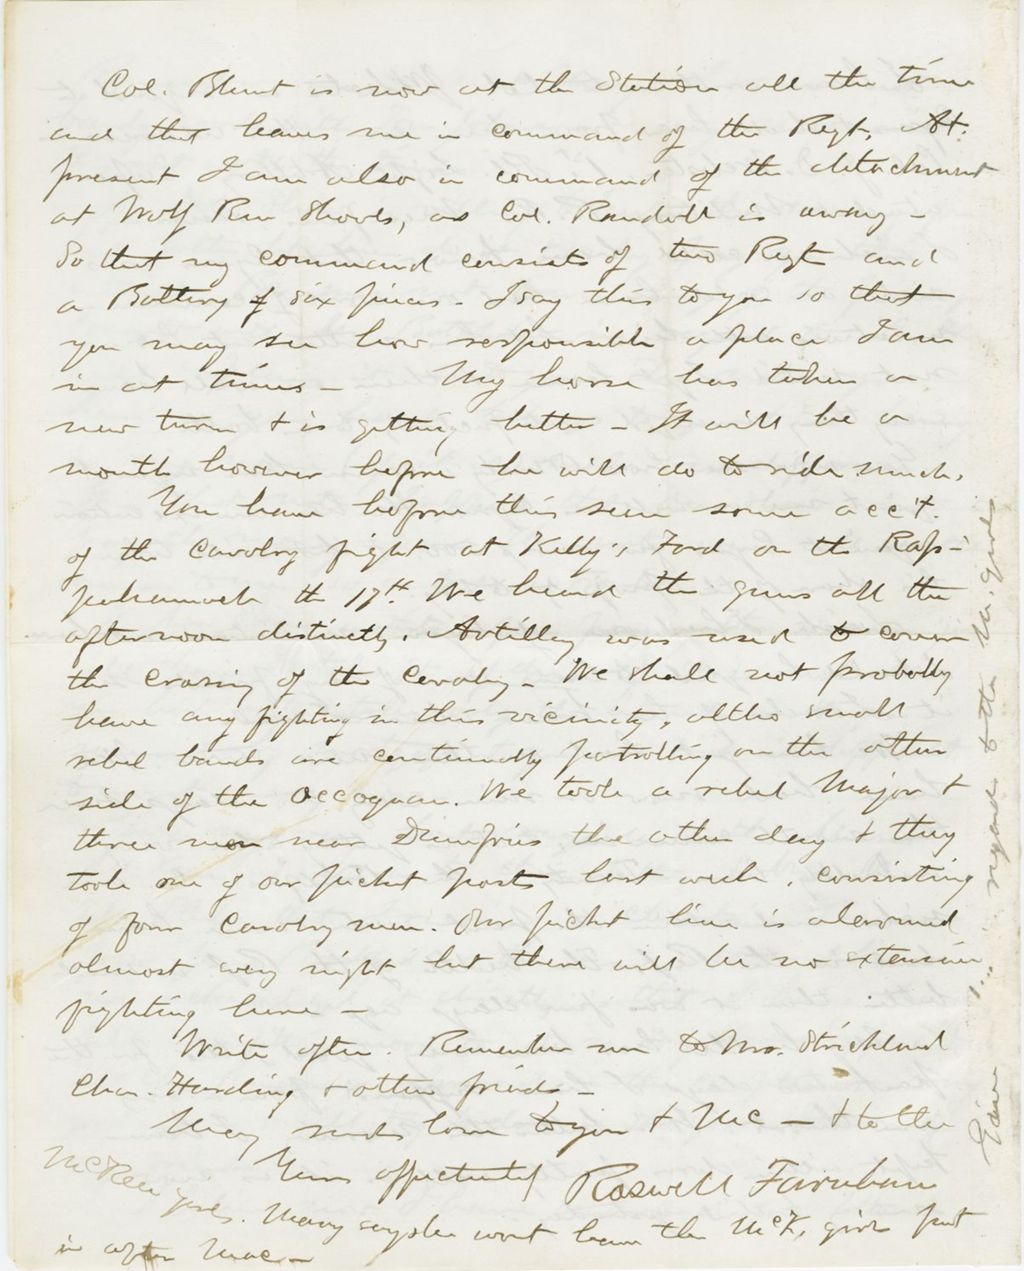 Col. Blunt is now at the Station all the time
and that leaves me in command of the Regt. At
present I am also in command of the detachment
at Wolf Run Shoals, as Col. Randall is away -
So that my command consists of two Regt and
a Battery of six pieces - I say this to you so that
you may see how responsible a place I am
in at times - My horse has taken a
new turn & is getting better - It will be a
month however before he will do to ride much.
You have before this seen some acc't.
of the cavalry fight at Kelly's Ford on the Rap-
pahannock the 17th. We heard the guns all the
afternoon distinctly. Artillery was used to cover
the crossing of the cavalry - We shall not probably
have any fighting in this vicinity, altho small
rebel bands are continually patrolling on the other
side of the Occoquan. We took a rebel Major &
three men near Dumfries the other day & they
took one of our picket posts last week, consisting
of four cavalry men. Our picket line is alarmed
almost every night but there will be no extensive
fighting here -
Write often. Remember me to Mrs. Strickland
Chas. Harding & other friends -
Mary sends love to you & Mc - & to the
McKeen girls. Yours affectionately Roswell Farnham
Mary says she wont have the McK. girls put
in after Mac -
Give regards to the